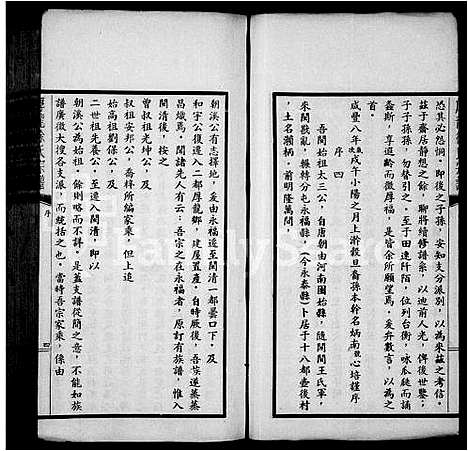 恐其必怨恫。即後之子孫，安知支分派別，以為來茲之考信。
茲于齋居靜想之餘，聊將續修譜系，以迪前人光，俾後世鑒；
子子孫孫，勿替引之。至于田連阡陌，位列台衡，咏瓜瓞而誦
螽斯，享遐齡而徵厚福，是皆余所願望焉。爰弁數言，以為之
首。
咸豐八年歲次戊午小陽之月上澣穀旦裔孫本幹名炳南號心培謹序
序四
吾閩始祖太三公，自唐朝由河南固始縣，隨閩王氏軍，
來閩戡亂，嗣後分屯永福縣（今永泰縣）卜居于十八都壺後村
，土名瀨柄。前明隆萬間，
朝漢公有志擇地，爰由永福遷至閩清一都曇口下。及
和宇公復遷入二都厚龍鄉，建屋置產，自時厥後，吾族運蓁蓁
昌熾焉。閩諸先人有云：吾宗之在永福者，原訂有族譜，惟入
閩清後，按之
曾叔祖光坤公，及
叔祖安邦公 喬梓所編家乘，但上追
始高祖劉保公，及
二世祖先養公。至遷入閩清，即以
朝漢公為始祖。餘則略而不詳。是蓋支譜從簡之意，不能如族
譜廣徵大搜各支派，而統括之也。當時吾宗家乘，係由
序
四